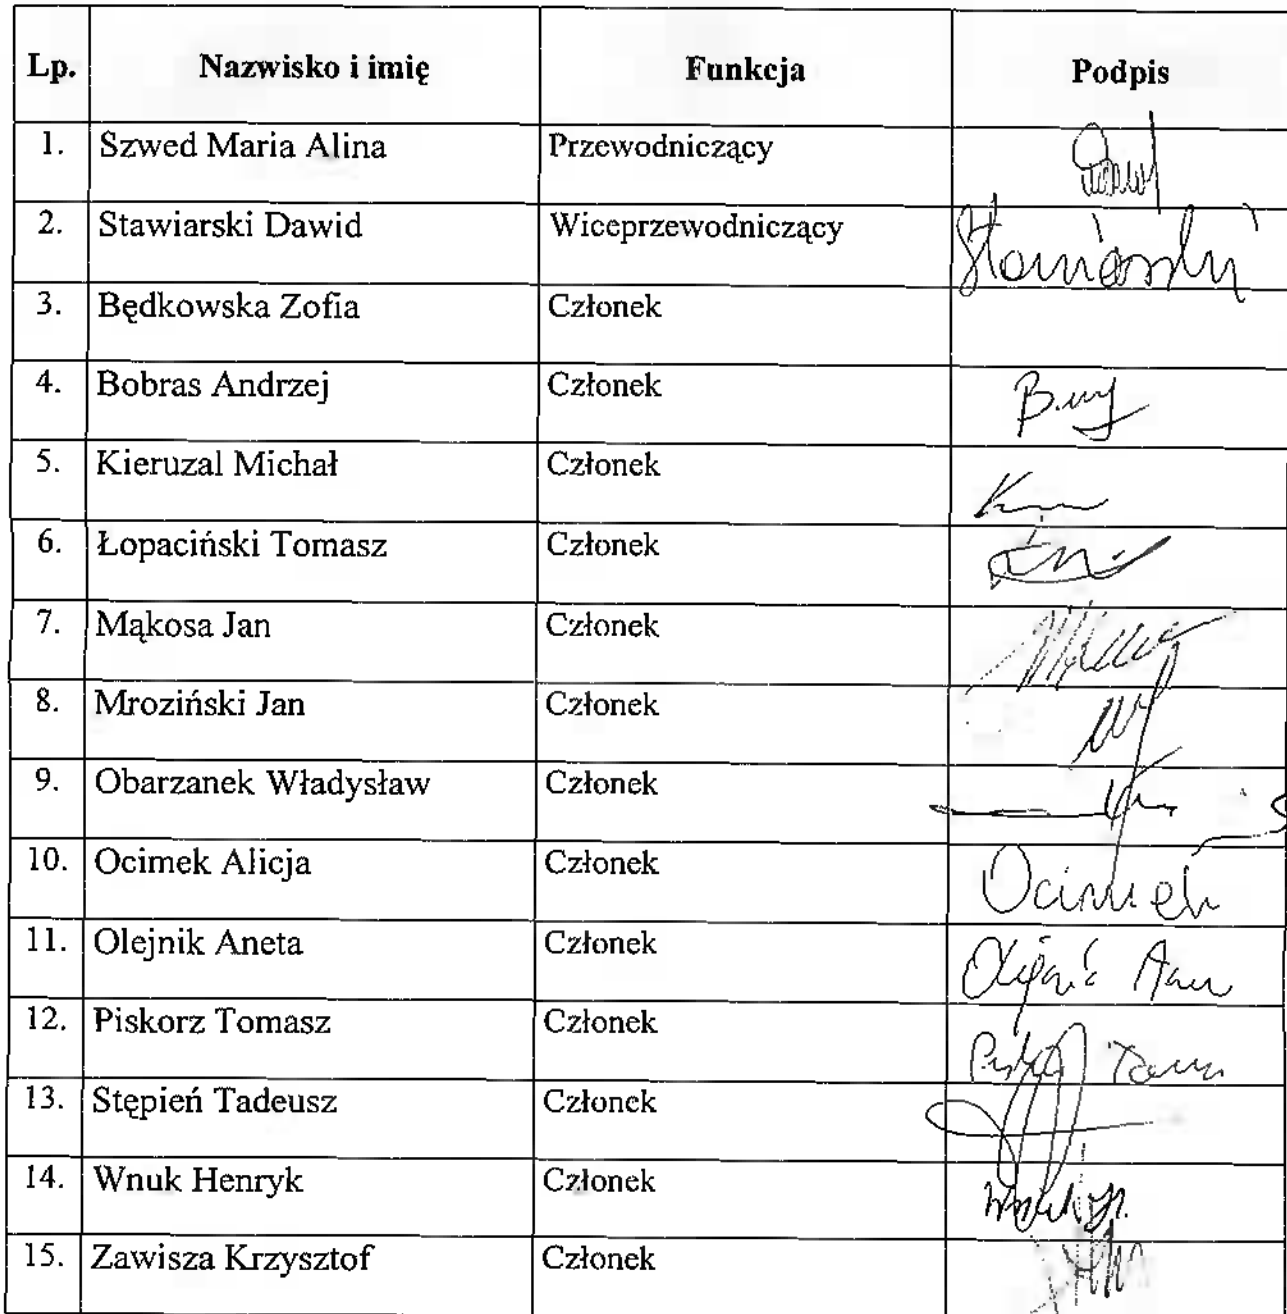 Lp. Nazwisko i imię Funkcja Podpis
1. Szwed Maria Alina Przewodniczący
2. Stawiarski Dawid Wiceprzewodniczący Stawiarski
3. Będkowska Zofia Członek
4. Bobras Andrzej Członek
5. Kieruzal Michał Członek
6. Łopaciński Tomasz Członek
7. Mąkosa Jan Członek
8. Mroziński Jan Członek
9. Obarzanek Władysław Członek
10. Ocimek Alicja Członek Ocimek
11. Olejnik Aneta Członek
12. Piskorz Tomasz Członek
13. Stępień Tadeusz Członek
14. Wnuk Henryk Członek
15. Zawisza Krzysztof Członek